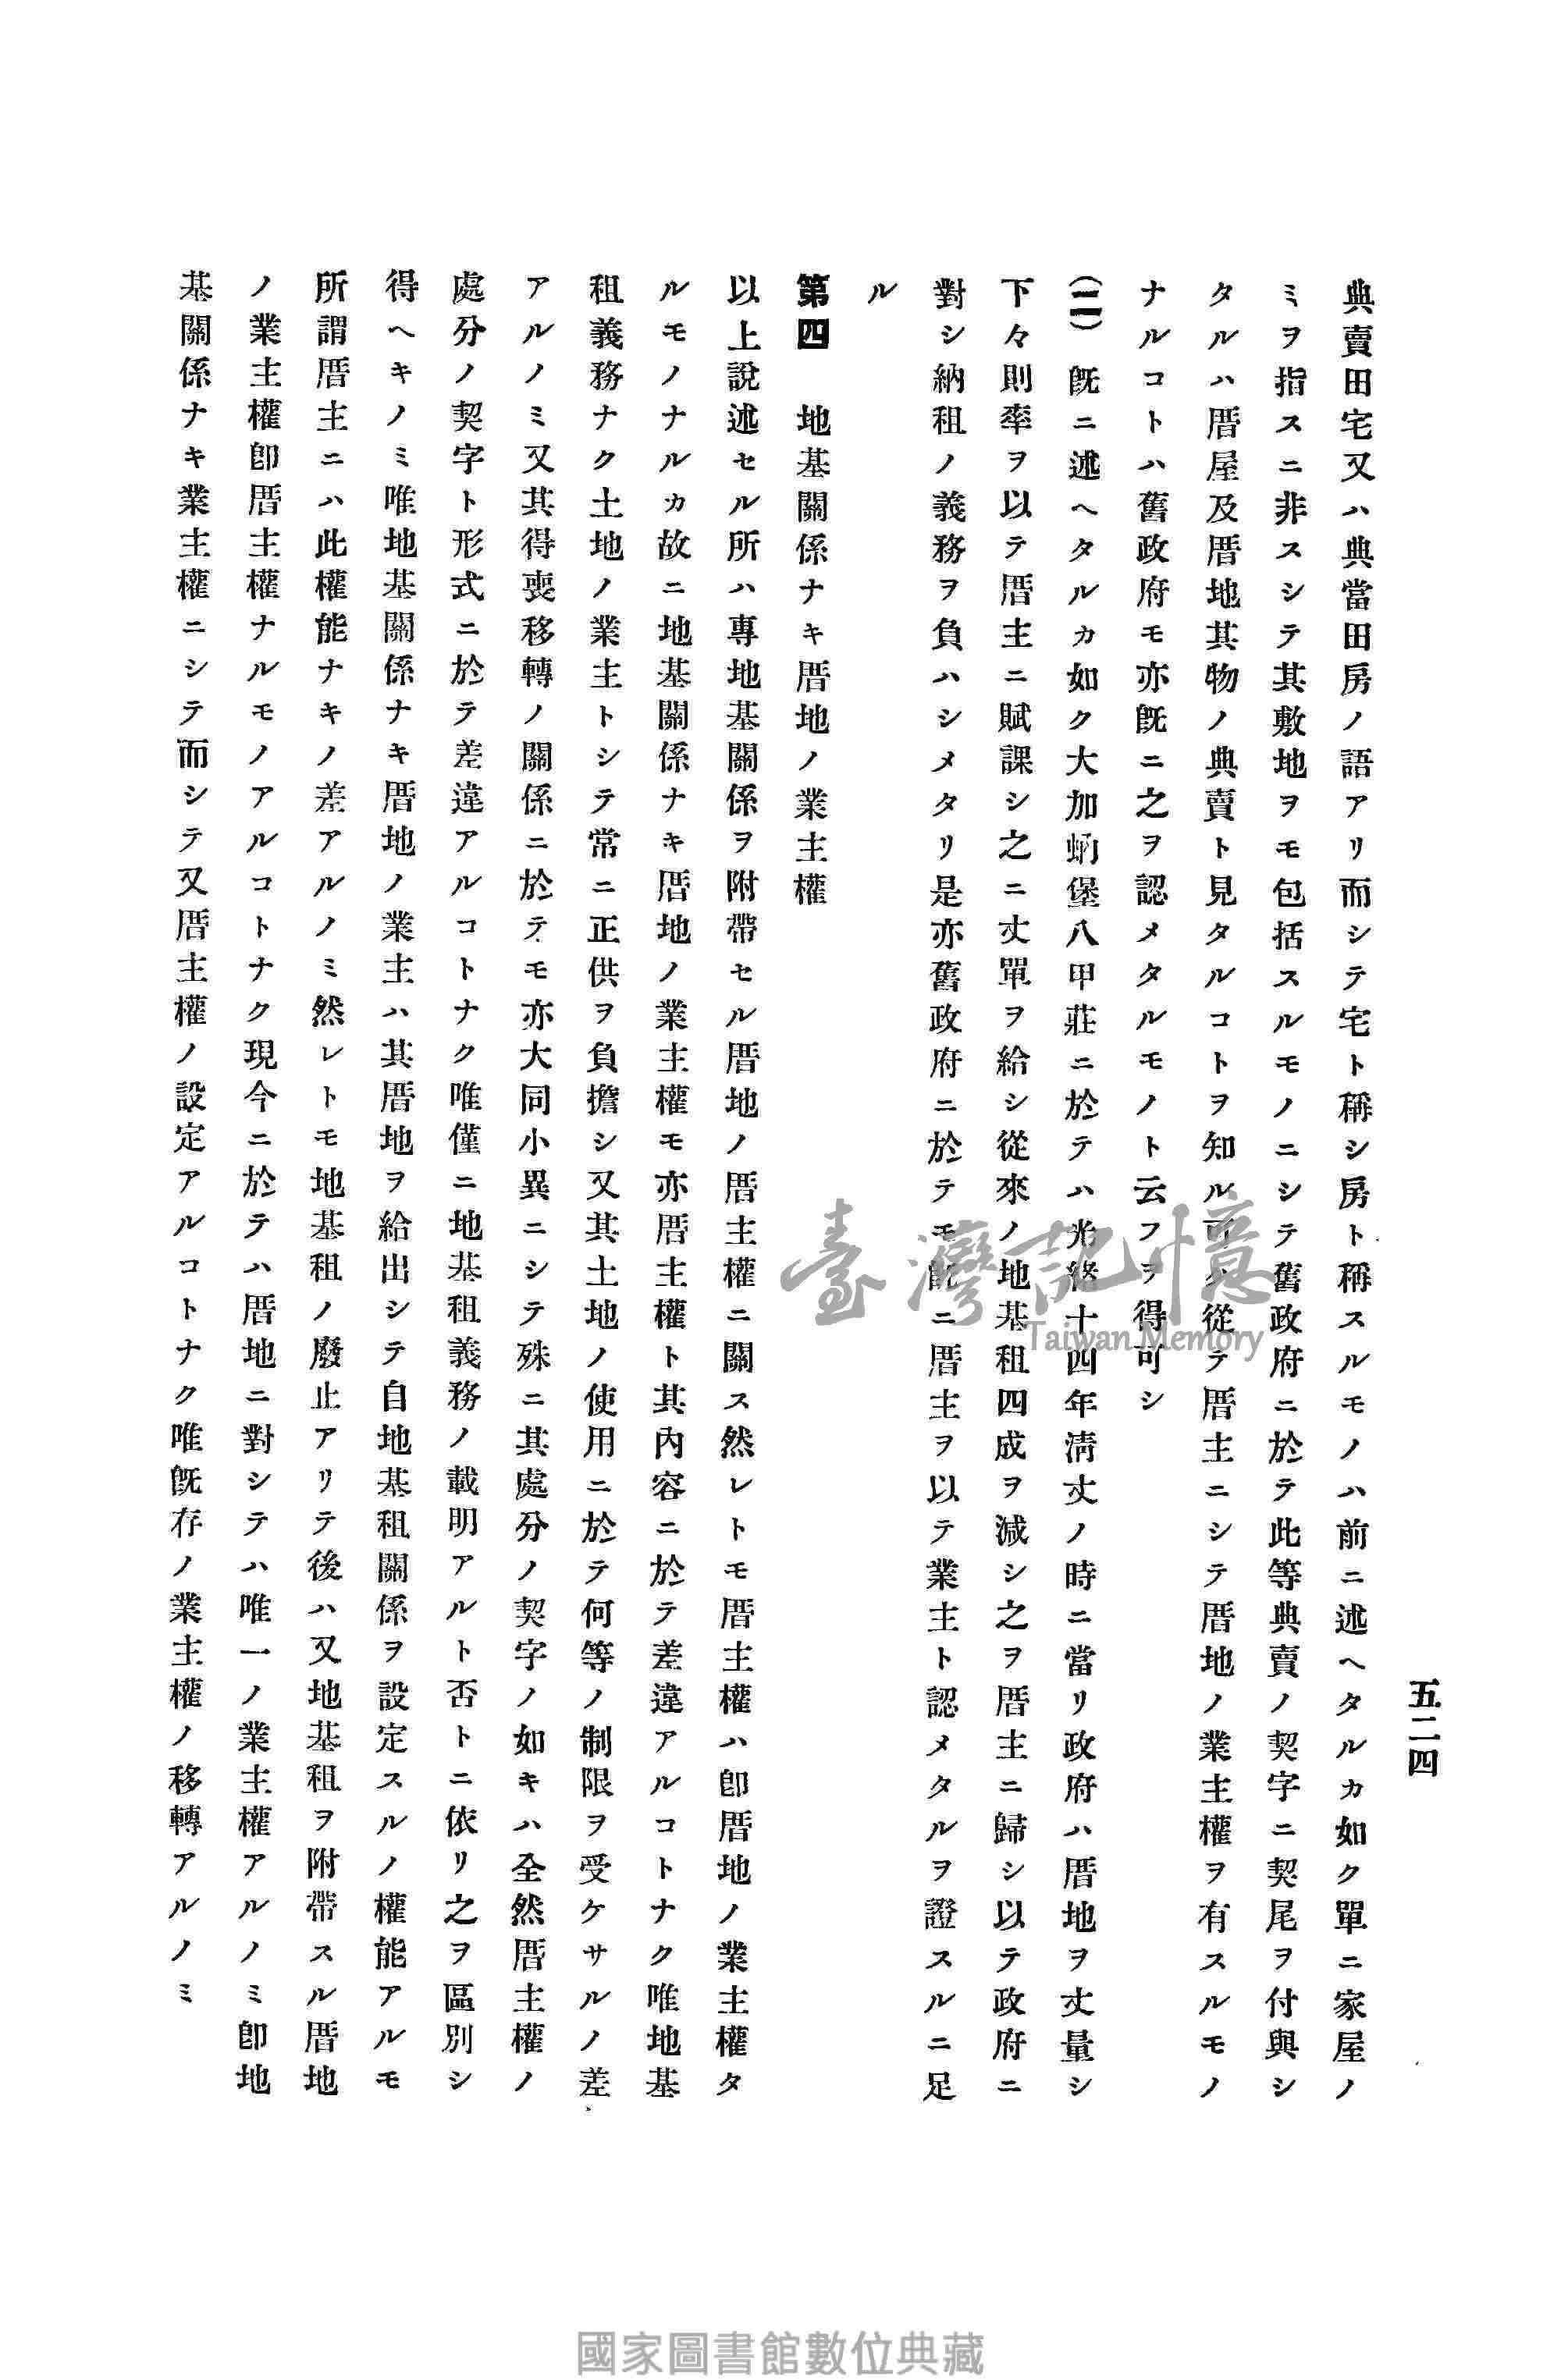 五二四
典賣田宅又ハ典當田房ノ語アリ而シテ宅ト稱シ房ト稱スルモノハ前ニ述ヘタルカ如ク單ニ家屋ノ
ミヲ指スニ非スシテ其敷地ヲモ包括スルモノニシテ舊政府ニ於テ此等典賣ノ契字ニ契尾ヲ付與シ
タルハ厝屋及厝地其物ノ典賣ト見タルコトヲ知ル可ク從テ厝主ニシテ厝地ノ業主權ヲ有スルモノ
ナルコトハ舊政府モ亦既ニ之ヲ認メタルモノト云フヲ得可シ
(二) 既ニ述ヘタルカ如ク大加蚋堡八甲莊ニ於テハ光緒十四年淸丈ノ時ニ當リ政府ハ厝地ヲ丈量シ
下々則率ヲ以テ厝主ニ賦課シ之ニ丈單ヲ給シ從來ノ地基租四成ヲ減シ之ヲ厝主ニ歸シ以テ政府ニ
對シ納租ノ義務ヲ負ハシメタリ是亦舊政府ニ於テモ既ニ厝主ヲ以テ業主ト認メタルヲ證スルニ足
ル
第四 地基關係ナキ厝地ノ業主權
以上說述セル所ハ專地基關係ヲ附帶セル厝地ノ厝主權ニ關ス然レトモ厝主權ハ卽厝地ノ業主權タ
ルモノナルカ故ニ地基關係ナキ厝地ノ業主權モ亦厝主權ト其內容ニ於テ差違アルコトナク唯地基
租義務ナク土地ノ業主トシテ常ニ正供ヲ負擔シ又其土地ノ使用ニ於テ何等ノ制限ヲ受ケサルノ差
アルノミ又其得喪移轉ノ關係ニ於テモ亦大同小異ニシテ殊ニ其處分ノ契字ノ如キハ全然厝主權ノ
處分ノ契字ト形式ニ於テ差違アルコトナク唯僅ニ地基租義務ノ載明アルト否トニ依リ之ヲ區別シ
得ヘキノミ唯地基關係ナキ厝地ノ業主ハ其厝地ヲ給出シテ自地基租關係ヲ設定スルノ權能アルモ
所謂厝主ニハ此權能ナキノ差アルノミ然レトモ地基租ノ廢止アリテ後ハ又地基租ヲ附帶スル厝地
ノ業主權卽厝主權ナルモノアルコトナク現今ニ於テハ厝地ニ對シテハ唯一ノ業主權アルノミ卽地
基關係ナキ業主權ニシテ而シテ又厝主權ノ設定アルコトナク唯既存ノ業主權ノ移轉アルノミ
臺灣記憶
Taiwan Memory
國家圖書館數位典藏